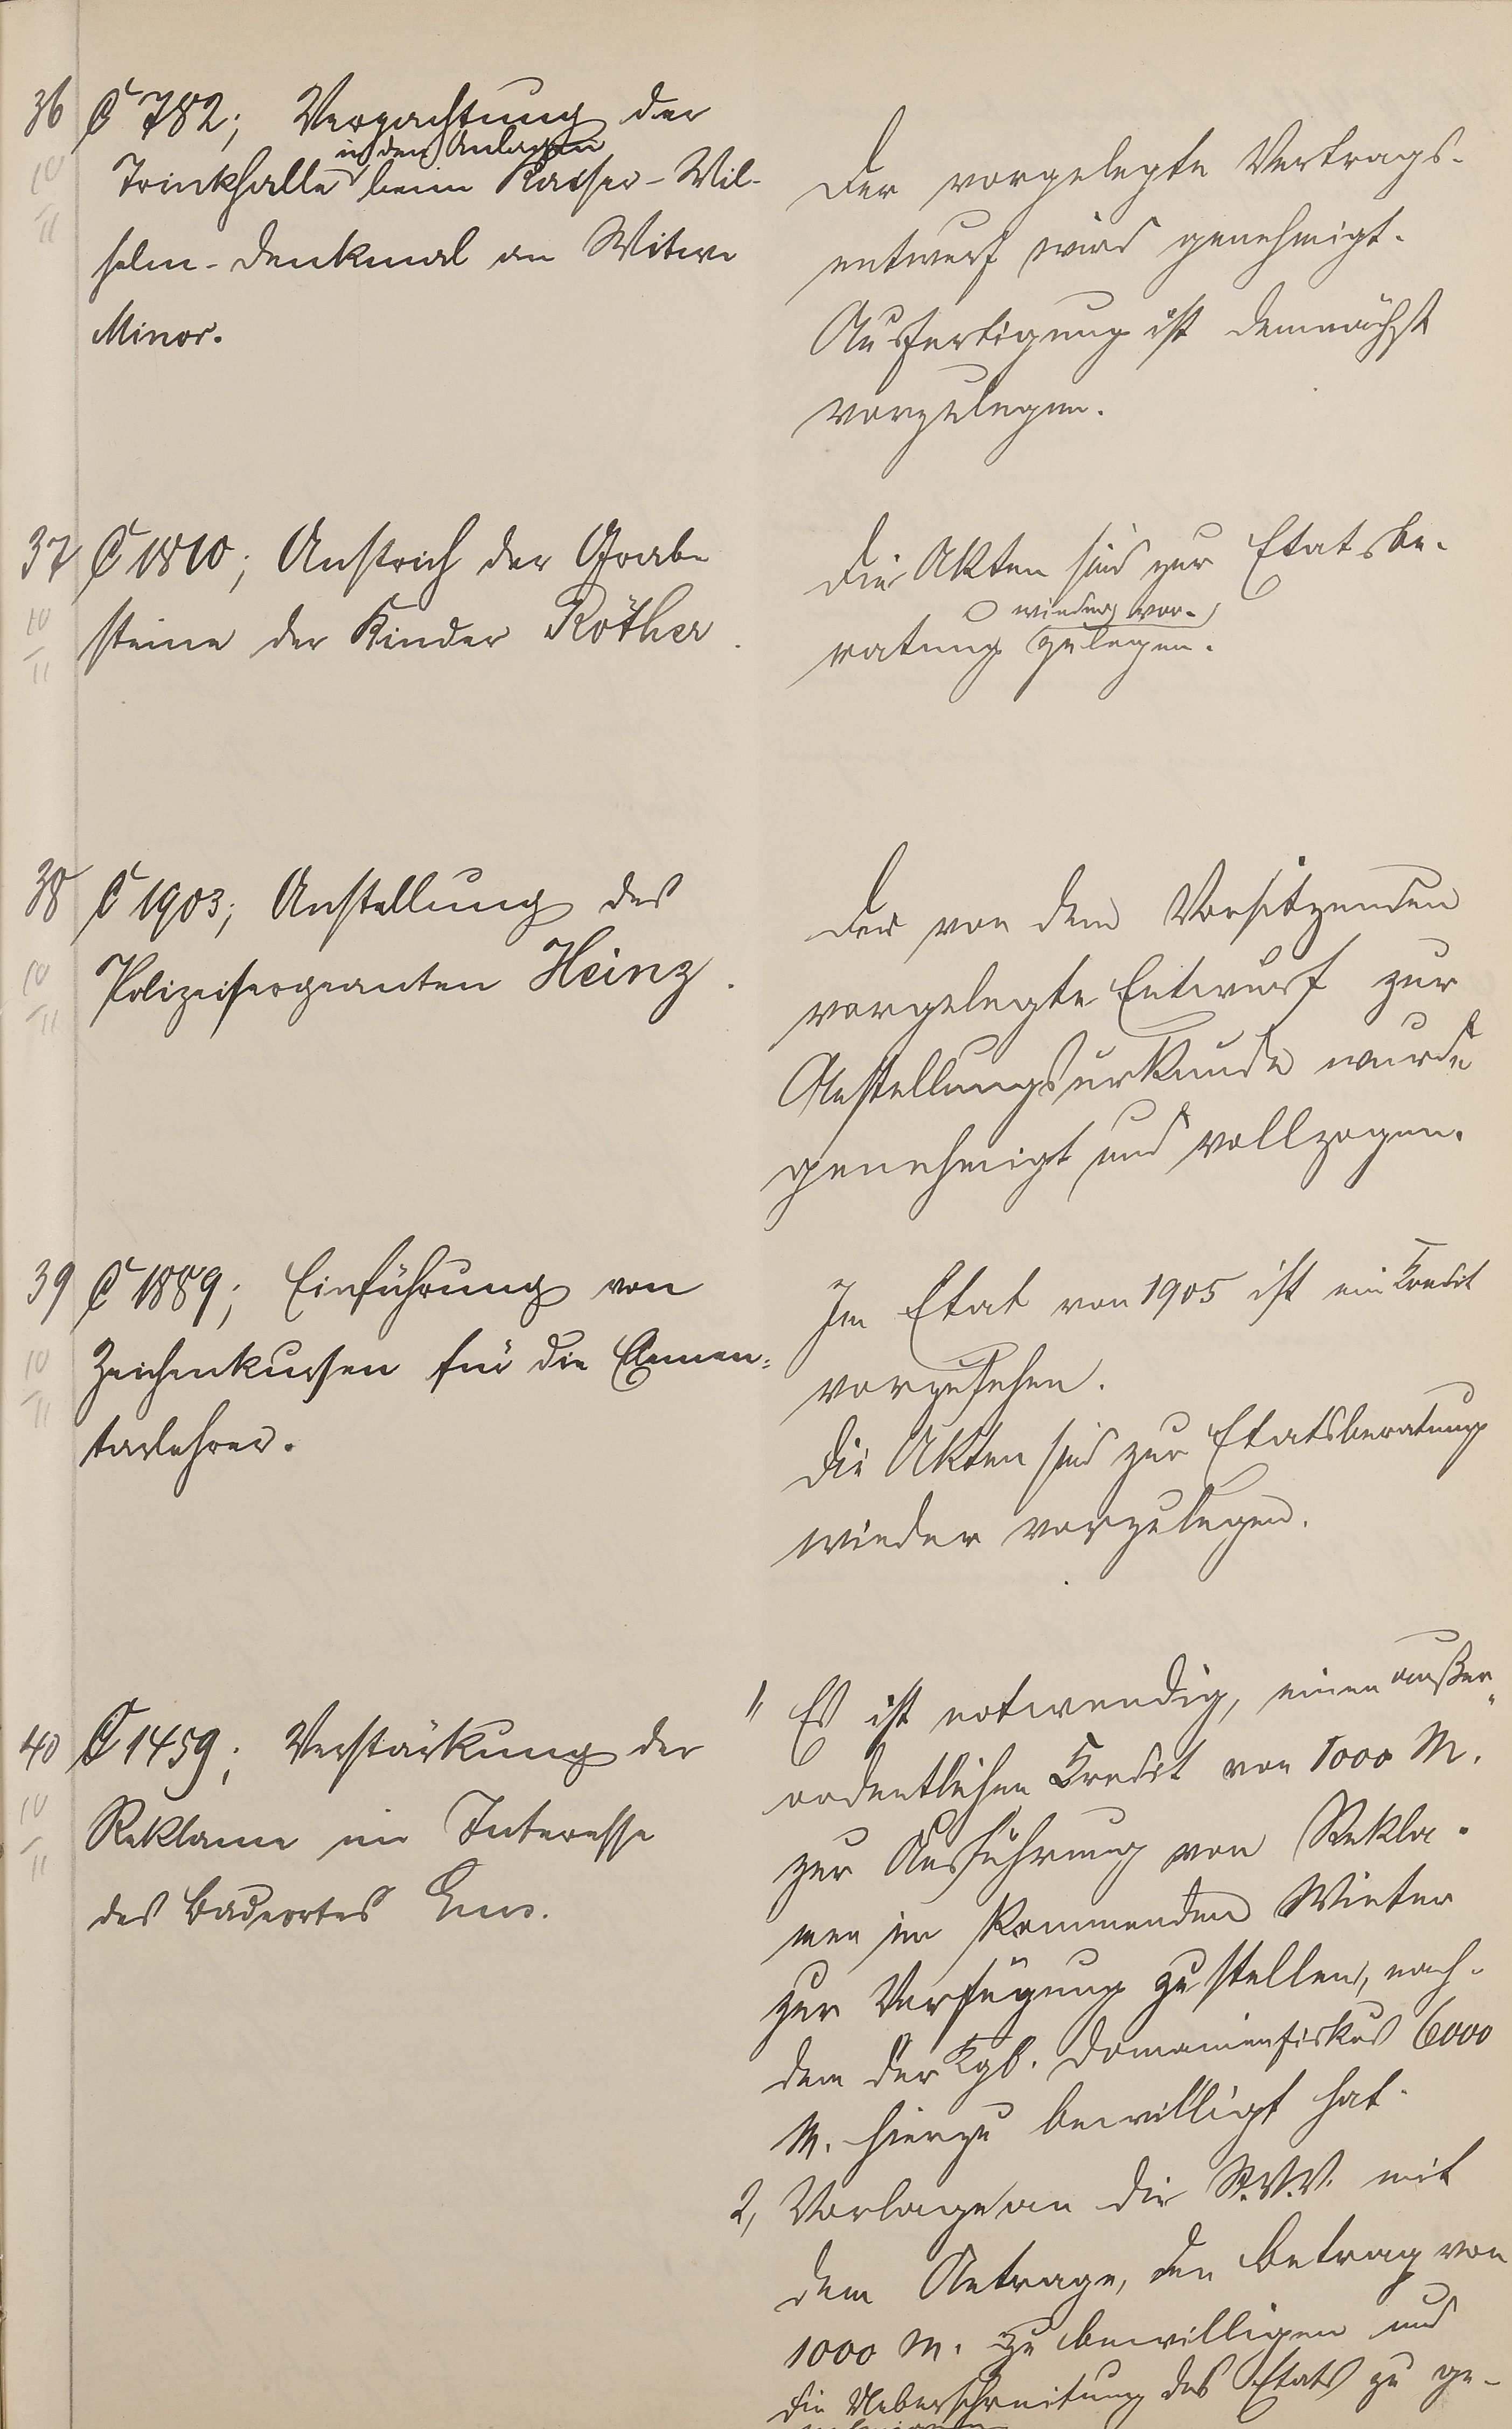 36 C 782; Verpachtung der
in den Anlagen
Trinkhalle beim Kaiser-Wil-
helm-Denkmal an Witwe
Minor.
10
11
Der vorgelegte Vertrags-
entwurf wird genehmigt.
Ausfertigung ist demnächst
vorzulegen.
37 C 1810; Anstrich der Grab-
steine der Kinder Röther.
10
11
Die Akten sind zur Etatsbe-
wieder vor-
ratung zulegen.
38 C 1903; Anstellung des
Polizeisergeanten Heinz.
10
11
Der von dem Vorsitzenden
vorgelegte Entwurf zur
Anstellungsurkunde wurde
genehmigt und vollzogen.
39 C 1889; Einführung von
Zeichenkursen für die Elemen-
tarlehrer.
10
11
Im Etat von 1905 ist ein Kredit
vorzusehen.
Die Akten sind zur Etatsberatung
wieder vorzulegen.
40 C 1459; Verstärkung der
Reklame im Interesse
des Badeortes Ems.
10
11
1, Es ist notwendig, einen außer-
ordentlichen Kredit von 1000 M.
zur Ausführung von Rekla-
men im kommenden Winter
zur Verfügung zu stellen, nach-
dem der Kgl. Domänenfiskus 6000
M. hierzu bewilligt hat.
2, Vorlage an die St.V.V. mit
dem Antrage, den Betrag von
1000 M. zu bewilligen und
die Ueberschreitung des Etats zu ge-